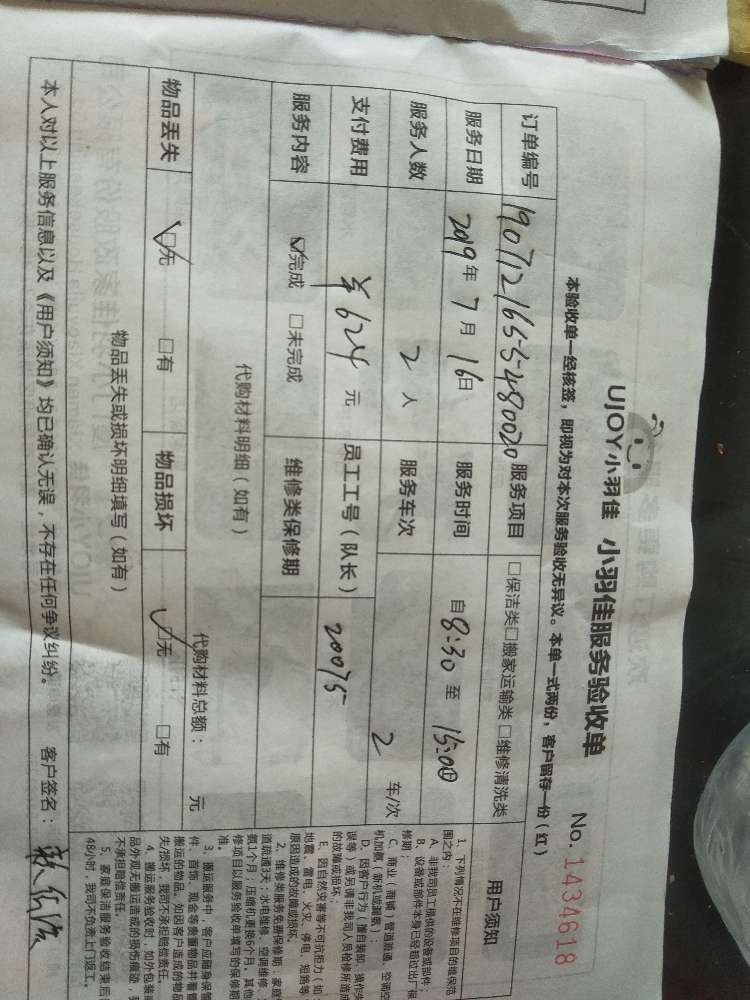 UJOY小羽佳 小羽佳服务验收单 No. 1434618
本验收单一经核签，即视为对本次服务验收无异议。本单一式两份，客户留存一份（红）
订单编号 190712165-5-480020 服务项目 □保洁类□搬家运输类 □维修清洗类
服务日期 2019年 7月 16日 服务时间 自 8:30 至 15:00
服务人数 2 人 服务车次 2 车/次
支付费用 ¥624 元 员工工号（队长） 20075
服务内容 ☑完成 □未完成 维修类保修期
代购材料明细（如有）
代购材料总额： 元
物品丢失 ☑无 □有 物品损坏 ☑无 □有
物品丢失或损坏明细填写（如有）
本人对以上服务信息以及《用户须知》均已确认无误，不存在任何争议纠纷。 客户签名：
用户须知
1、下列情况不在维修项目的维保范
围之内：
A、非我司员工提供的设备或部件；
B、设备或部件本身已经超过出厂保
修期；
C、商业（商铺）管道疏通、空调空
机加氟（新机或漏氟）；
D、因客户行为（擅自装卸、操作失
误等）或另请非我司人员检修所造成
的故障或损坏；
E、因自然灾害等不可抗拒力（如
地震、雷电、火灾、停电、短路等
原因造成的故障或损坏。
2、维修类服务免费保修期：家庭
道疏通3天；水电维修、空调维修、
氨1个月；压缩机更换6个月，其他
修项目以服务验收单填写的保修期
准。
3、搬运服务中，客户应随身保管
件、首饰、现金等贵重物品并看管
搬运的物品，如因客户造成的物品
失/损坏，我司不承担赔偿责任。
4、搬运服务验收时，如外包装或
品外观无搬运造成的损伤痕迹，我
不承担赔偿责任。
5、家庭保洁服务验收结束后
48小时，我司不负责上门返工。